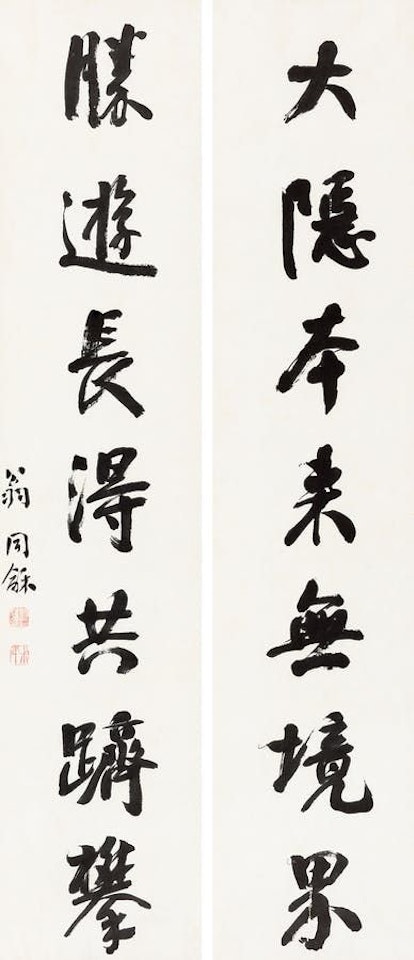 大隱本來無境界
勝遊長得共躋攀
翁同龢